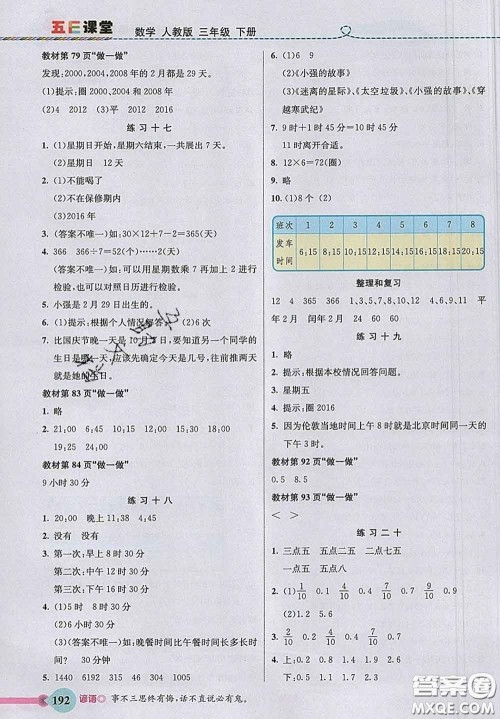 五E课堂
数学 人教版 三年级 下册
教材第 79 页“做一做”
发现:2000,2004,2008 年的 2 月都是 29 天。
(1)提示:圈 2000 2004 2008
(2)4 2012 (3)平 2012 2016
练习十七
1. (1)星期日开始,星期六结束,一共出现了 7 天。
(2)星期日 12 天
2. (1)不能喝了
(2)不在保修期内
(3)2016 年
3. (答案不唯一)如:30×12+7-8=2(天)
4. 366 366÷7=52(个)……2(天)
(答案不唯一)如:可以用星期数乘 7 再加 2 进行
检验,也可以对照日历进行检验。
5. 小强是 2 月 29 日出生的。
6. (1)提示:根据个人情况解答。 (2)6 次
7. 比国庆节晚一天是 10 月 1 日的前一个同学的
生日是哪一天,应该先确定今天是几号,往前推两天
就是她的生日。
教材第 83 页“做一做”
1. 略
2. 21:00 6:45 10:30 15:00 19:30
18:25 24:00
教材第 84 页“做一做”
9 小时 30 分
练习十八
1. 20:00 晚上 11:45 19:30
2. 没有 没有
3. 第一次:早上 8 时 30 分
第二次:中午 12 时 30 分
第三次:下午 16 时 30 分
4. (1)5 时 8 时 47 分
(2)6 时 30 分
(3)(答案不唯一)如:晚餐时间比午餐时间长多少?
30 分
5. 1440 6192 345 46 3 1
6. (1)6 9
(2)《小强的故事》
(3)《迷离的星际》、《太空垃圾》、《小强的故事》、《穿
越寒武纪》
7. 9 时+1 时 45 分=10 时 45 分
11 时离开合适。
8. 12×6=72(圈)
9. 略
10. (1)8 个 (2)
班次 1 2 3 4 5 6 7 8
发车时间 6:15 8:15 10:15 12:15 14:15 16:15 18:15 20:15
整理和复习
12 4 365 366 1、3、5、7、8、10、12 4、6、9、11 平
年 2 月 闰年 2 月 24 60 60
练习十九
1. 略
2. 提示:根据本校情况回答问题。
3. 星期五
4. 提示:圈 2016
5. 因为伦敦当地时间上午 8 时就是北京时间同一天的
下午 3 时。
教材第 92 页“做一做”
0.5 8.5
教材第 93 页“做一做”
< >
练习二十
1. 三点五 五点二二 二点五二 五点七五
一点五 五点八
2. (1)1/10 0.1 4/10 0.4 9/10 0.9
(2)1.2 5.6
192 谚语 事不三思终有悔,话不直说必有鬼。
答案圈
MXQE.COM